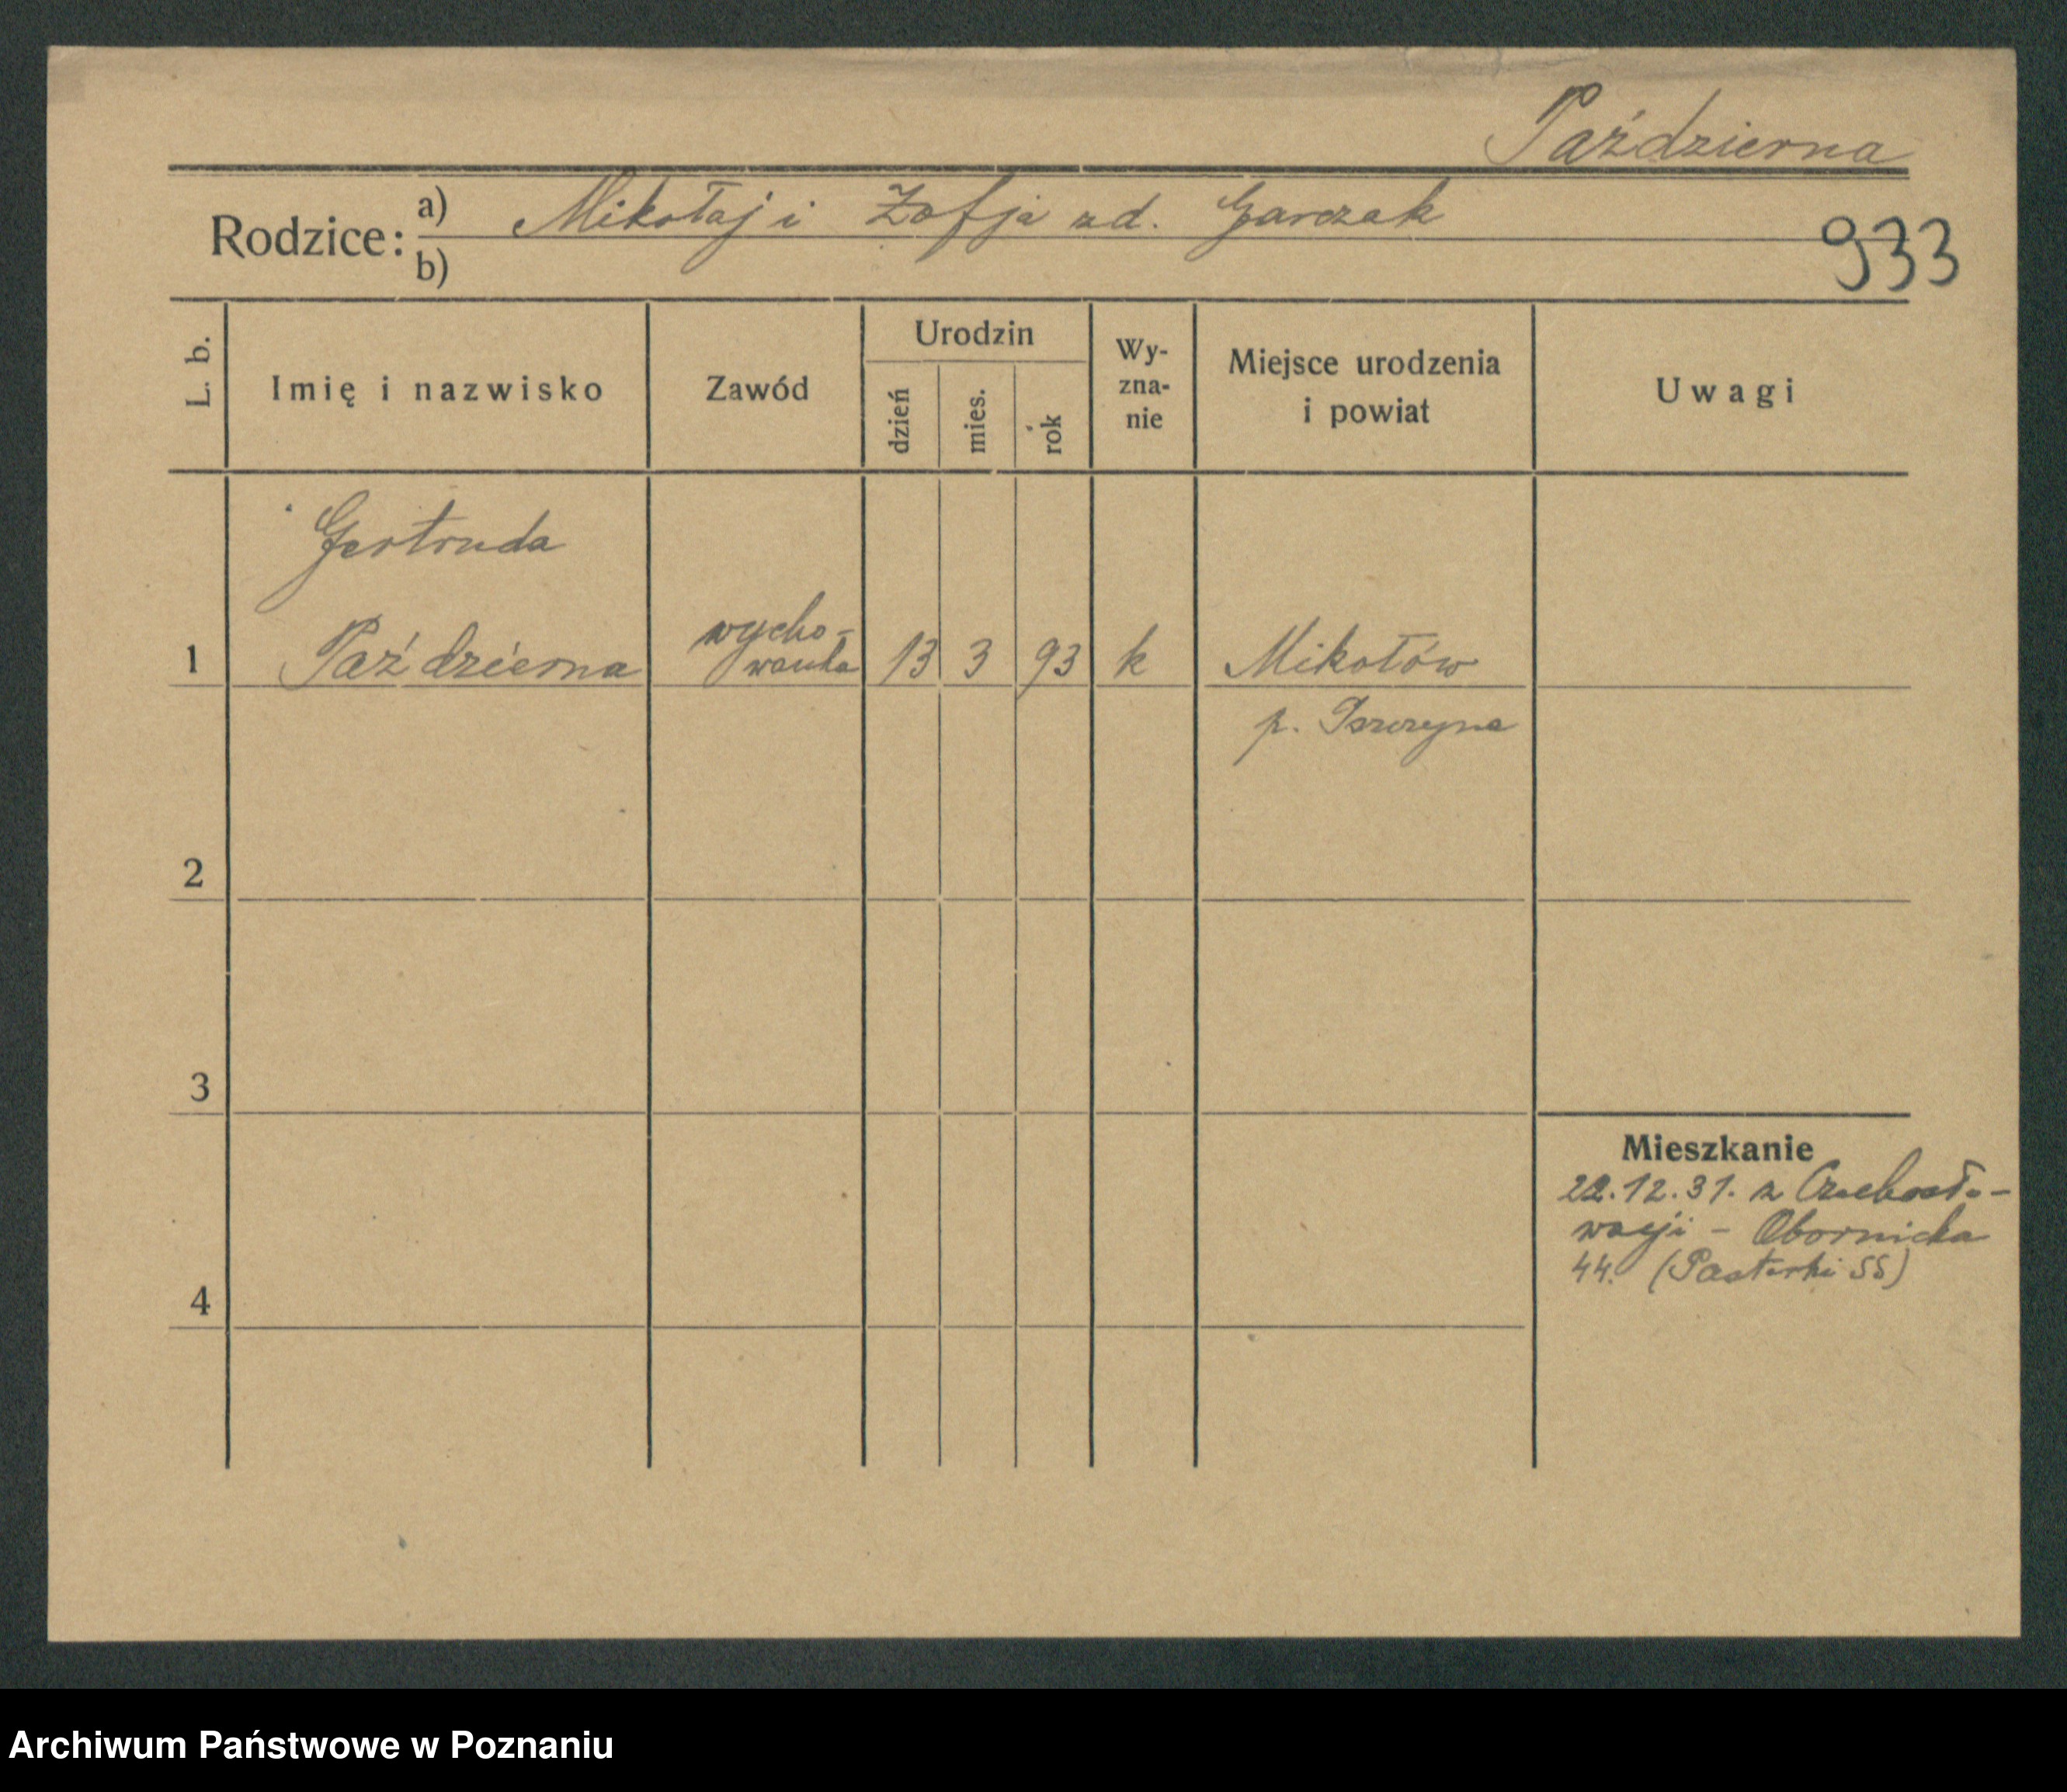 Październa
Rodzice: a) Mikołaj i Zofja zd. Garczak
b)
933
L. b.
Imię i nazwisko
Zawód
Urodzin
dzień
mies.
rok
Wy-
zna-
nie
Miejsce urodzenia
i powiat
Uwagi
Gertruda
1 Październa wycho-
wawka 13 3 93 k Mikołów
p. Pszczyna
2
3
Mieszkanie
22.12.31. z Czechosło-
wacji - Obornicka
44. (Pasterki SS)
4
Archiwum Państwowe w Poznaniu